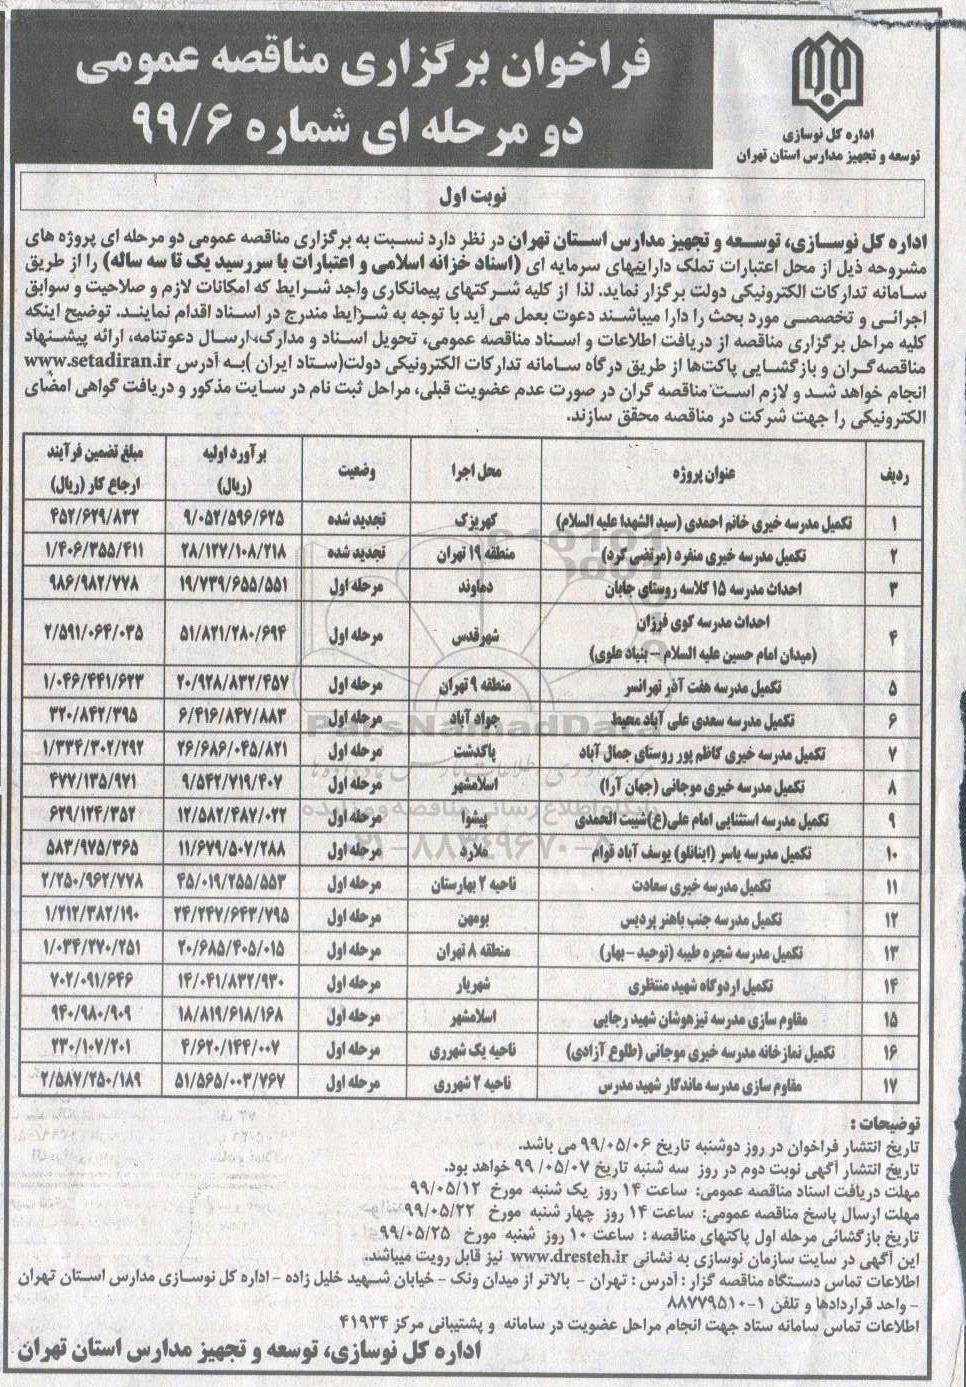 اداره کل نوسازی
توسعه و تجهیز مدارس استان تهران
فراخوان برگزاری مناقصه عمومی
دو مرحله ای شماره ۹۹/۶
نوبت اول
اداره کل نوسازی، توسعه و تجهیز مدارس استان تهران در نظر دارد نسبت به برگزاری مناقصه عمومی دو مرحله ای پروژه های
مشروحه ذیل از محل اعتبارات تملک داراییهای سرمایه ای (اسناد خزانه اسلامی و اعتبارات با سررسید یک تا سه ساله) را از طریق
سامانه تدارکات الکترونیکی دولت برگزار نماید. لذا از کلیه شرکتهای پیمانکاری واجد شرایط که امکانات لازم و صلاحیت و سوابق
اجرائی و تخصصی مورد بحث را دارا میباشند دعوت بعمل می آید با توجه به شرایط مندرج در اسناد اقدام نمایند. توضیح اینکه
کلیه مراحل برگزاری مناقصه از دریافت اطلاعات و اسناد مناقصه عمومی، تحویل اسناد و مدارک،ارسال دعوتنامه، ارائه پیشنهاد
مناقصه گران و بازگشایی پاکت‌ها از طریق درگاه سامانه تدارکات الکترونیکی دولت(ستاد ایران )به آدرس www.setadiran.ir
انجام خواهد شد و لازم است مناقصه گران در صورت عدم عضویت قبلی، مراحل ثبت نام در سایت مذکور و دریافت گواهی امضای
الکترونیکی را جهت شرکت در مناقصه محقق سازند.
ردیف عنوان پروژه محل اجرا وضعیت برآورد اولیه (ریال) مبلغ تضمین فرآیند ارجاع کار (ریال)
۱ تکمیل مدرسه خیری خانم احمدی (سید الشهدا علیه السلام) کهریزک تجدید شده ۹/۰۵۲/۵۹۶/۶۲۵ ۴۵۲/۶۲۹/۸۳۲
۲ تکمیل مدرسه خیری منفرد (مرتضی گرد) منطقه ۱۹ تهران تجدید شده ۲۸/۱۲۷/۱۰۸/۲۱۸ ۱/۴۰۶/۳۵۵/۴۱۱
۳ احداث مدرسه ۱۵ کلاسه روستای جابان دماوند مرحله اول ۱۹/۷۳۹/۶۵۵/۵۵۱ ۹۸۶/۹۸۲/۷۷۸
۴ احداث مدرسه کوی فرزان
(میدان امام حسین علیه السلام – بنیاد علوی) شهرقدس مرحله اول ۵۱/۸۲۱/۲۸۰/۶۹۴ ۲/۵۹۱/۰۶۴/۰۳۵
۵ تکمیل مدرسه هفت آذر تهرانسر منطقه ۹ تهران مرحله اول ۲۰/۹۲۸/۸۳۲/۴۵۷ ۱/۰۴۶/۴۴۱/۶۲۳
۶ تکمیل مدرسه سعدی علی آباد محیط جواد آباد مرحله اول ۶/۴۱۶/۸۴۷/۸۸۳ ۳۲۰/۸۴۲/۳۹۵
۷ تکمیل مدرسه خیری کاظم پور روستای جمال آباد پاکدشت مرحله اول ۲۶/۶۸۶/۰۴۵/۸۲۱ ۱/۳۳۴/۳۰۲/۲۹۲
۸ تکمیل مدرسه خیری موجانی (جهان آرا) اسلامشهر مرحله اول ۹/۵۴۲/۷۱۹/۴۰۷ ۴۷۷/۱۳۵/۹۷۱
۹ تکمیل مدرسه استثنایی امام علی(ع)شیبت الحمدی پیشوا مرحله اول ۱۲/۵۸۲/۴۸۷/۰۲۲ ۶۲۹/۱۲۴/۳۵۲
۱۰ تکمیل مدرسه یاسر (اینانلو) یوسف آباد قوام ملارد مرحله اول ۱۱/۶۷۹/۵۰۷/۲۸۸ ۵۸۳/۹۷۵/۳۶۵
۱۱ تکمیل مدرسه خیری سعادت ناحیه ۲ بهارستان مرحله اول ۴۵/۰۱۹/۲۵۵/۵۵۳ ۲/۲۵۰/۹۶۲/۷۷۸
۱۲ تکمیل مدرسه جنب باهنر پردیس بومهن مرحله اول ۲۴/۲۴۷/۶۴۳/۷۹۵ ۱/۲۱۲/۳۸۲/۱۹۰
۱۳ تکمیل مدرسه شجره طیبه (توحید – بهار) منطقه ۸ تهران مرحله اول ۲۰/۶۸۵/۴۰۵/۰۱۵ ۱/۰۳۴/۲۷۰/۲۵۱
۱۴ تکمیل اردوگاه شهید منتظری شهریار مرحله اول ۱۴/۰۴۱/۸۳۲/۹۳۰ ۷۰۲/۰۹۱/۶۴۶
۱۵ مقاوم سازی مدرسه تیزهوشان شهید رجایی اسلامشهر مرحله اول ۱۸/۸۱۹/۶۱۸/۱۶۸ ۹۴۰/۹۸۰/۹۰۹
۱۶ تکمیل نمازخانه مدرسه خیری موجانی (طلوع آزادی) ناحیه یک شهرری مرحله اول ۴/۶۲۰/۱۴۴/۰۰۷ ۲۳۰/۱۰۷/۲۰۱
۱۷ مقاوم سازی مدرسه ماندگار شهید مدرس ناحیه ۲ شهرری مرحله اول ۵۱/۵۶۵/۰۰۳/۷۶۷ ۲/۵۸۷/۲۵۰/۱۸۹
توضیحات :
تاریخ انتشار فراخوان در روز دوشنبه تاریخ ۹۹/۰۵/۰۶ می باشد.
تاریخ انتشار آگهی نوبت دوم در روز سه شنبه تاریخ ۹۹/۰۵/۰۷ خواهد بود.
مهلت دریافت اسناد مناقصه عمومی: ساعت ۱۴ روز یک شنبه مورخ ۹۹/۰۵/۱۲
مهلت ارسال پاسخ مناقصه عمومی: ساعت ۱۴ روز چهار شنبه مورخ ۹۹/۰۵/۲۲
تاریخ بازگشائی مرحله اول پاکتهای مناقصه : ساعت ۱۰ روز شنبه مورخ ۹۹/۰۵/۲۵
این آگهی در سایت سازمان نوسازی به نشانی www.dresteh.ir نیز قابل رویت میباشد.
اطلاعات تماس دستگاه مناقصه گزار : آدرس : تهران – بالاتر از میدان ونک – خیابان شهید خلیل زاده – اداره کل نوسازی مدارس استان تهران
– واحد قراردادها و تلفن ۱-۸۸۷۷۹۵۱۰
اطلاعات تماس سامانه ستاد جهت انجام مراحل عضویت در سامانه و پشتیبانی مرکز ۴۱۹۳۴
اداره کل نوسازی، توسعه و تجهیز مدارس استان تهران
ParsNamadData
پایگاه اطلاع رسانی مناقصه و مزایده
۰۲۱-۸۸۳۴۹۶۷۰-۵